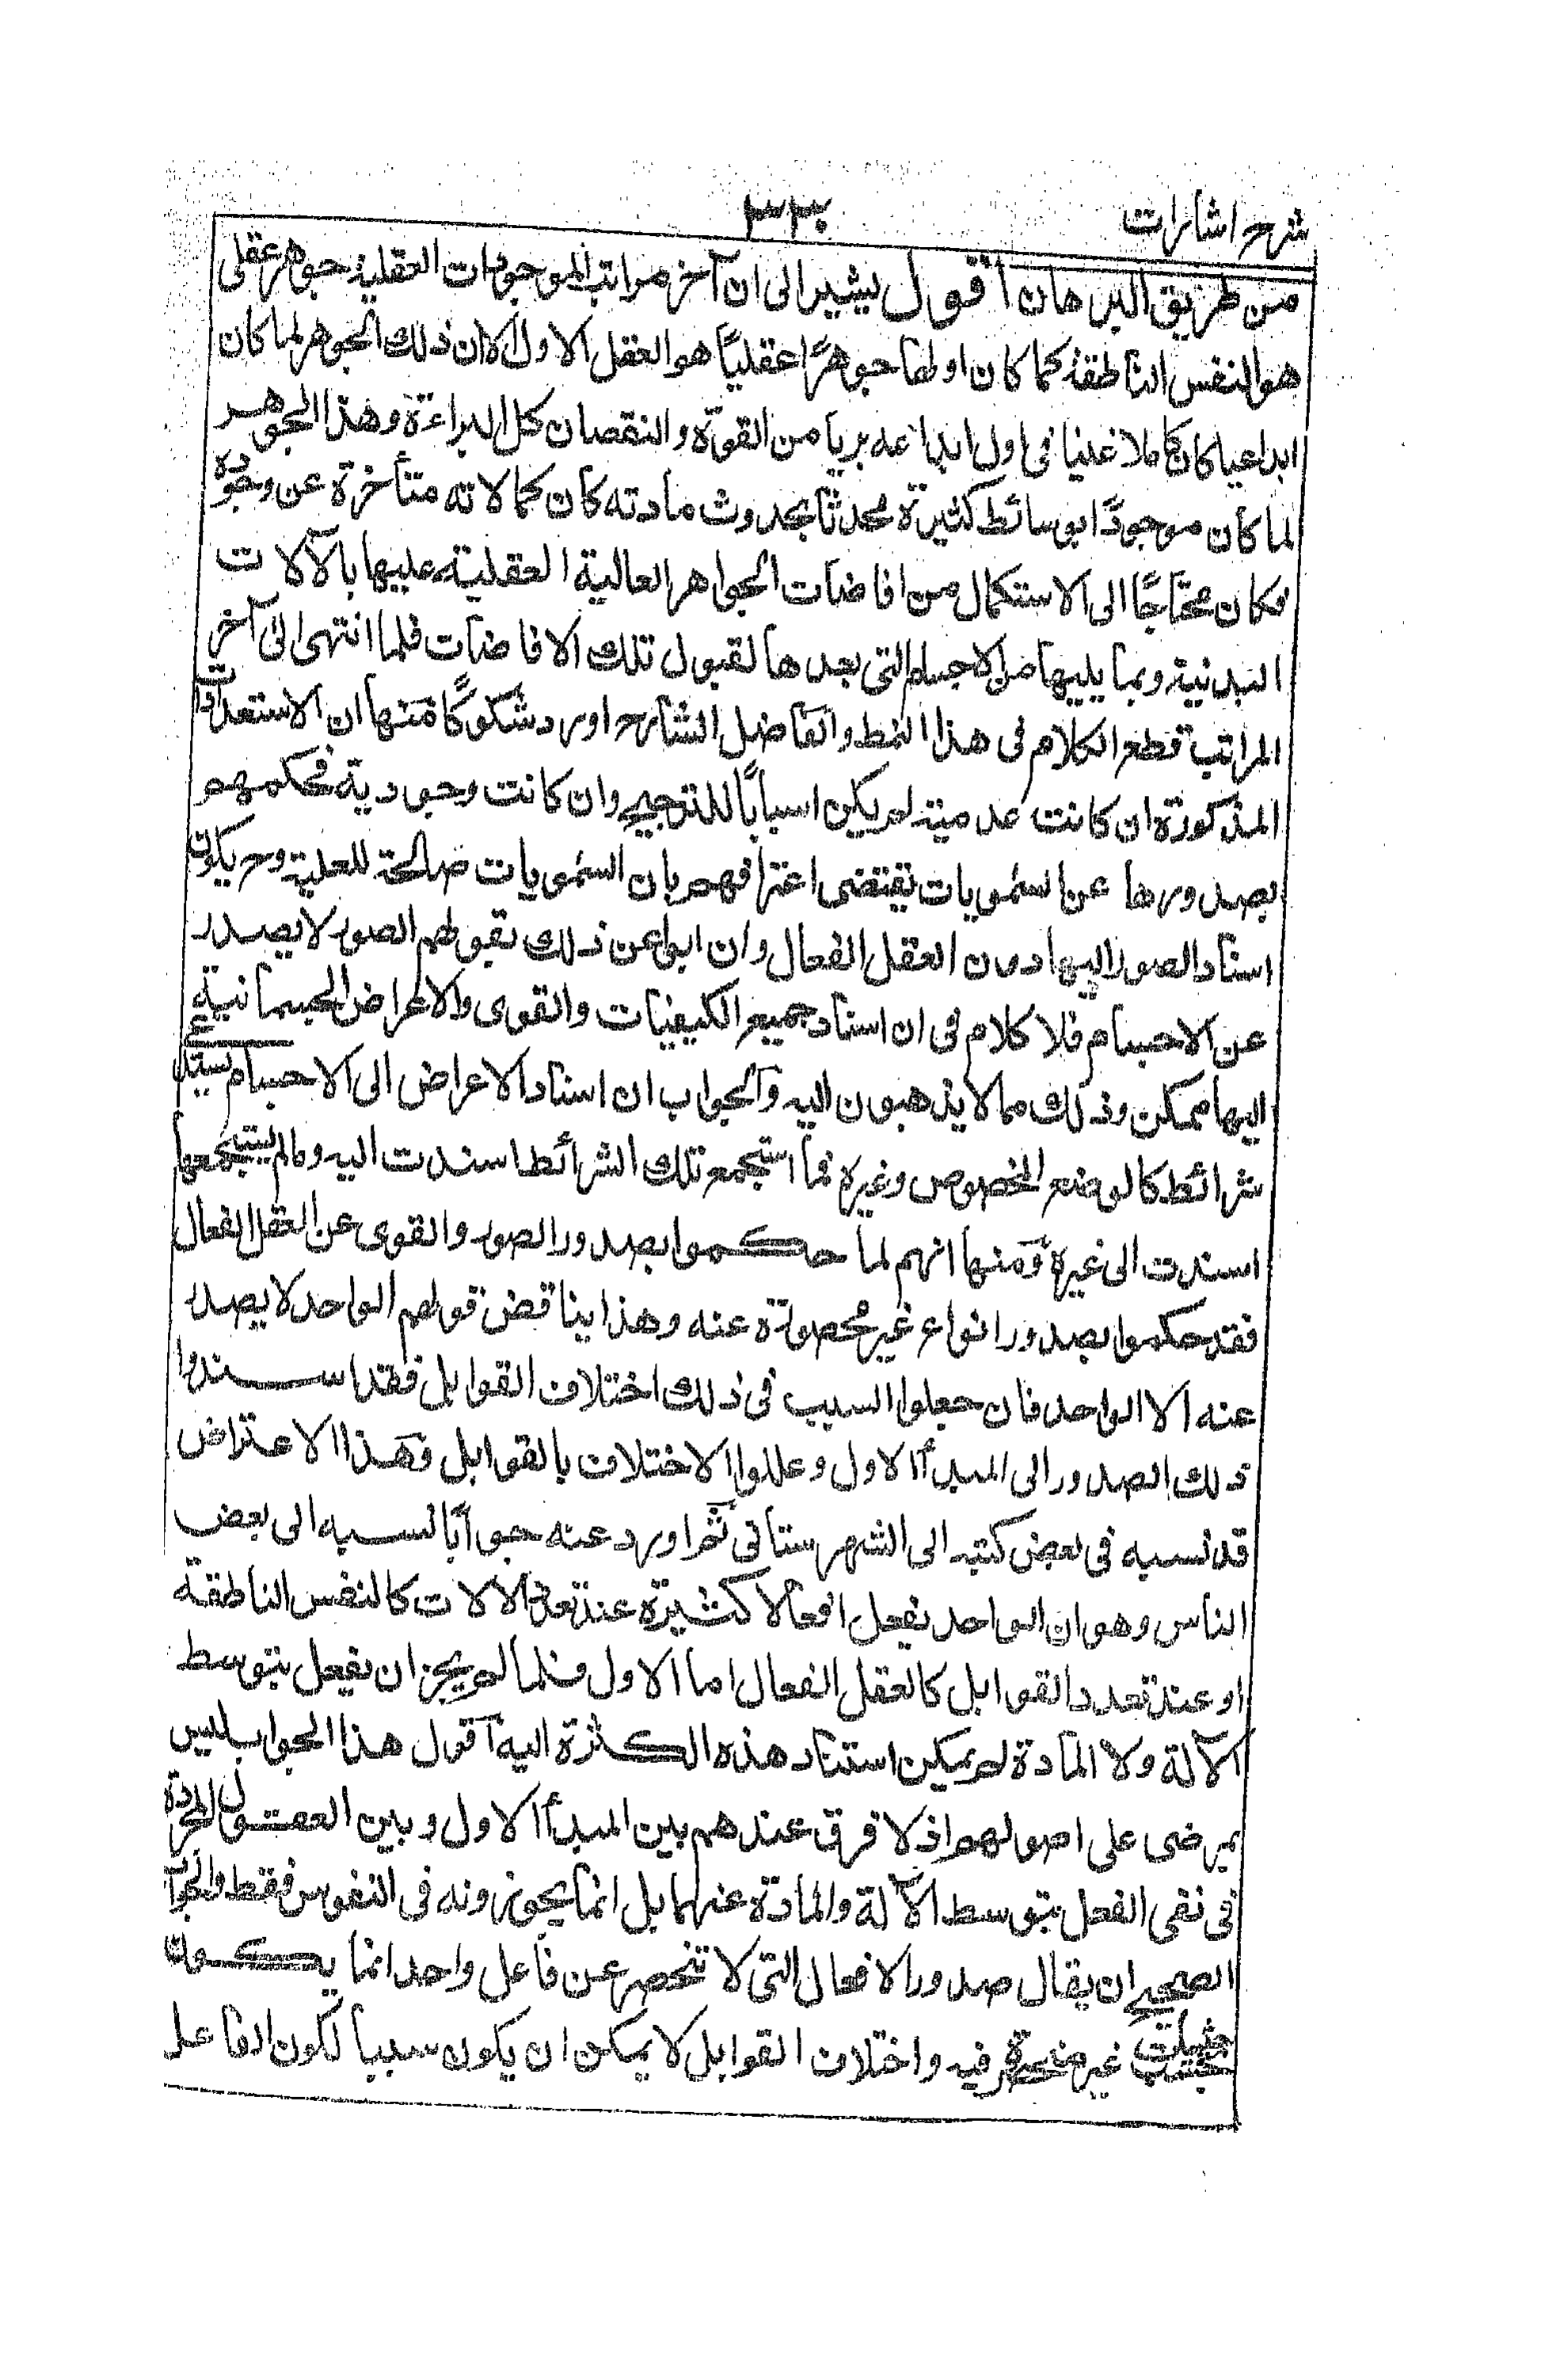 شرح اشارات
٣٣٠
من طريق البرهان اقول يشير الى ان آخر مراتب الموجودات العقلية جوهر عقلى
هو النفس الناطقة كما كان اولها جوهرًا عقليًا هو العقل الاول الا ان ذلك الجوهر لما كان
ابداعيا كان كاملا غنيا فى اول ابداعه بريا من القوة والنقصان كل البراءة وهذا الجوهر
لما كان موجودًا بوسائط كثيرة محدثا بحدوث مادته كان كمالاته متأخرة عن وجوده
فكان محتاجًا الى الاستكمال من افاضات الجواهر العالية العقلية عليها بالآلات
البدنية وبما يليها من الاجسام التى بعدها لقبول تلك الافاضات فلما انتهى الى آخر
المراتب قطع الكلام فى هذا النمط والفاضل الشارح اورد شكوكًا منها ان الاستعدادات
المذكورة ان كانت عدمية لم يكن اسبابًا للترجيح وان كانت وجودية فحكمهم
بصدورها عن السمويات يقتضى اعترافهم بان السمويات صالحة للعلية وح يكون
اسناد الصور اليها دون العقل الفعال وان ابوا عن ذلك بقولهم الصور لا يصدر
عن الاجسام فلا كلام فى ان اسناد جميع الكيفيات والقوى والاعراض الجسمانية
اليها ممكن وذلك مما لا يذهبون اليه والجواب ان اسناد الاعراض الى الاجسام يستدعى
شرائط كالوضع المخصوص وغيره فما استجمع تلك الشرائط اسندت اليه وما لم يستجمعها
اسندت الى غيره ومنها انهم لما حكموا بصدور الصور والقوى عن العقل الفعال
فقد حكموا بصدور انواع غير محصورة عنه وهذا يناقض قولهم الواحد لا يصدر
عنه الا الواحد فان جعلوا السبب فى ذلك اختلاف القوابل فقد اسندوا
ذلك الصدور الى المبدأ الاول وعللوا الاختلاف بالقوابل فهذا الاعتراض
قد نسبه فى بعض كتبه الى الشهرستانى ثم اورد عنه جوابًا نسبه الى بعض
الناس وهو ان الواحد يفعل افعالا كثيرة عند تعدد الالات كالنفس الناطقة
او عند تعدد القوابل كالعقل الفعال اما الاول فلما لم يجز ان يفعل بتوسط
الآلة ولا المادة لم يمكن استناد هذه الكثرة اليه اقول هذا الجواب ليس
بمرضى على اصولهم اذ لا فرق عندهم بين المبدأ الاول وبين العقول المجردة
فى نفى الفعل بتوسط الآلة والمادة عنهما بل انما يجوزونه فى النفوس فقط والجواب
الصحيح ان يقال صدور الافعال التى لا تنحصر عن فاعل واحد انما يكون
بحيثيات غير منحصرة فيه واختلاف القوابل لا يمكن ان يكون سببا لكون الفاعل